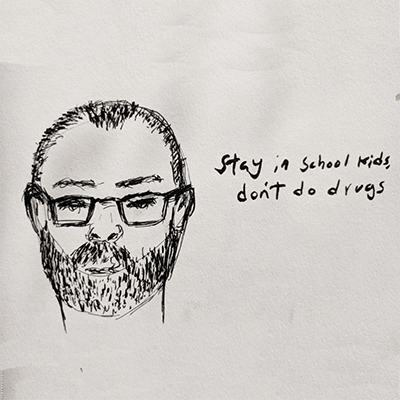 Stay in School kids,
don't do drugs